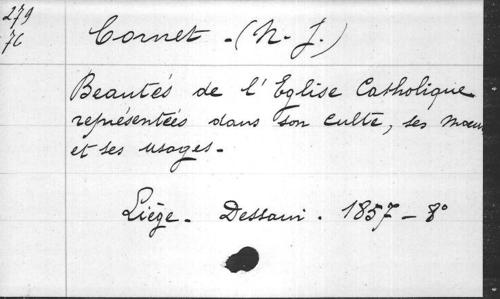 279
7C
Cornet - (N. J.)
Beautés de l'Eglise Catholique
représentées dans son culte, ses mœurs
et ses usages.
Liège. Dessain. 1857 - 8°